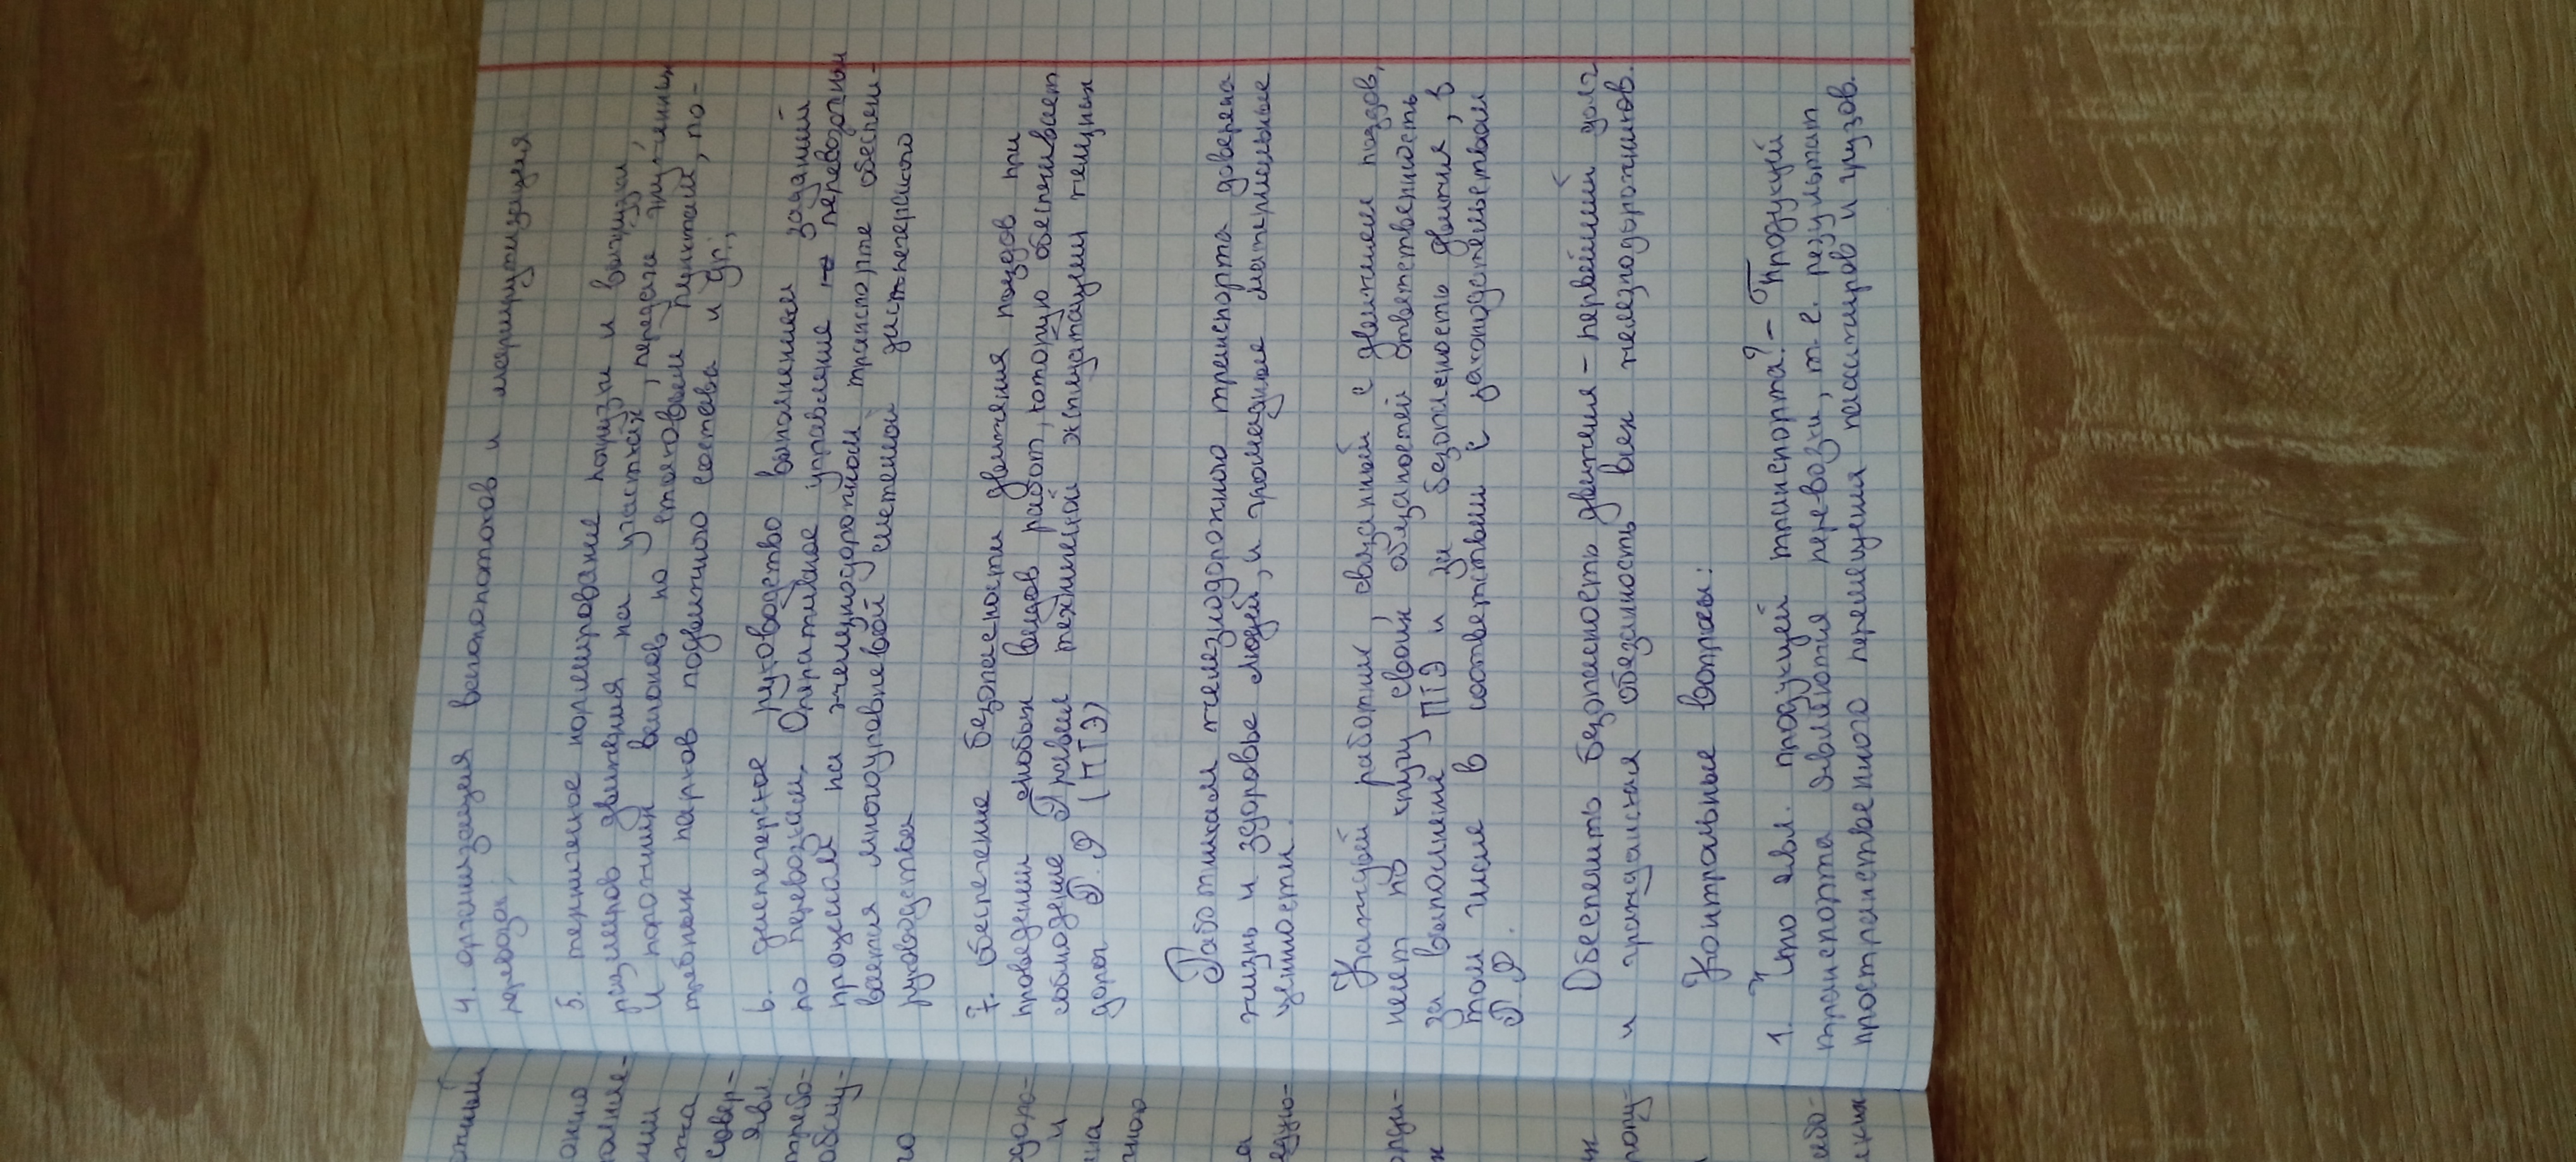 4. организация вагонопотоков и маршрутизация
перевозок;
5. техническое нормирование погрузки и выгрузки,
размеров движения на участках, передачи груженных
и порожних вагонов по стыковым пунктам, по-
требных парков подвижного состава и др.;
6. диспетчерское руководство выполнением заданий
по перевозкам. Оперативное управление перевозочным
процессом на железнодорожном транспорте обеспечи-
вается многоуровневой системой диспетчерского
руководства
7. обеспечение безопасности движения поездов при
проведении любых видов работ, которую обеспечивает
соблюдение Правил технической эксплуатации железных
дорог РФ (ПТЭ)
Работникам железнодорожного транспорта доверена
жизнь и здоровье людей, и громадные материальные
ценности.
Каждый работник, связанный с движением поездов,
несет по кругу своих обязаностей ответственность
за выполнение ПТЭ и за безопасность движения, в
том числе в соответствии с законодательством
РФ.
Обеспечить безопасность движения - первейший долг
и гражданская обязанность всех железнодорожников.
Контрольные вопросы:
1. Что явл. продукцией транспорта? - Продукцией
транспорта являются перевозки, т.е. результат
пространственного перемещения пассажиров и грузов.